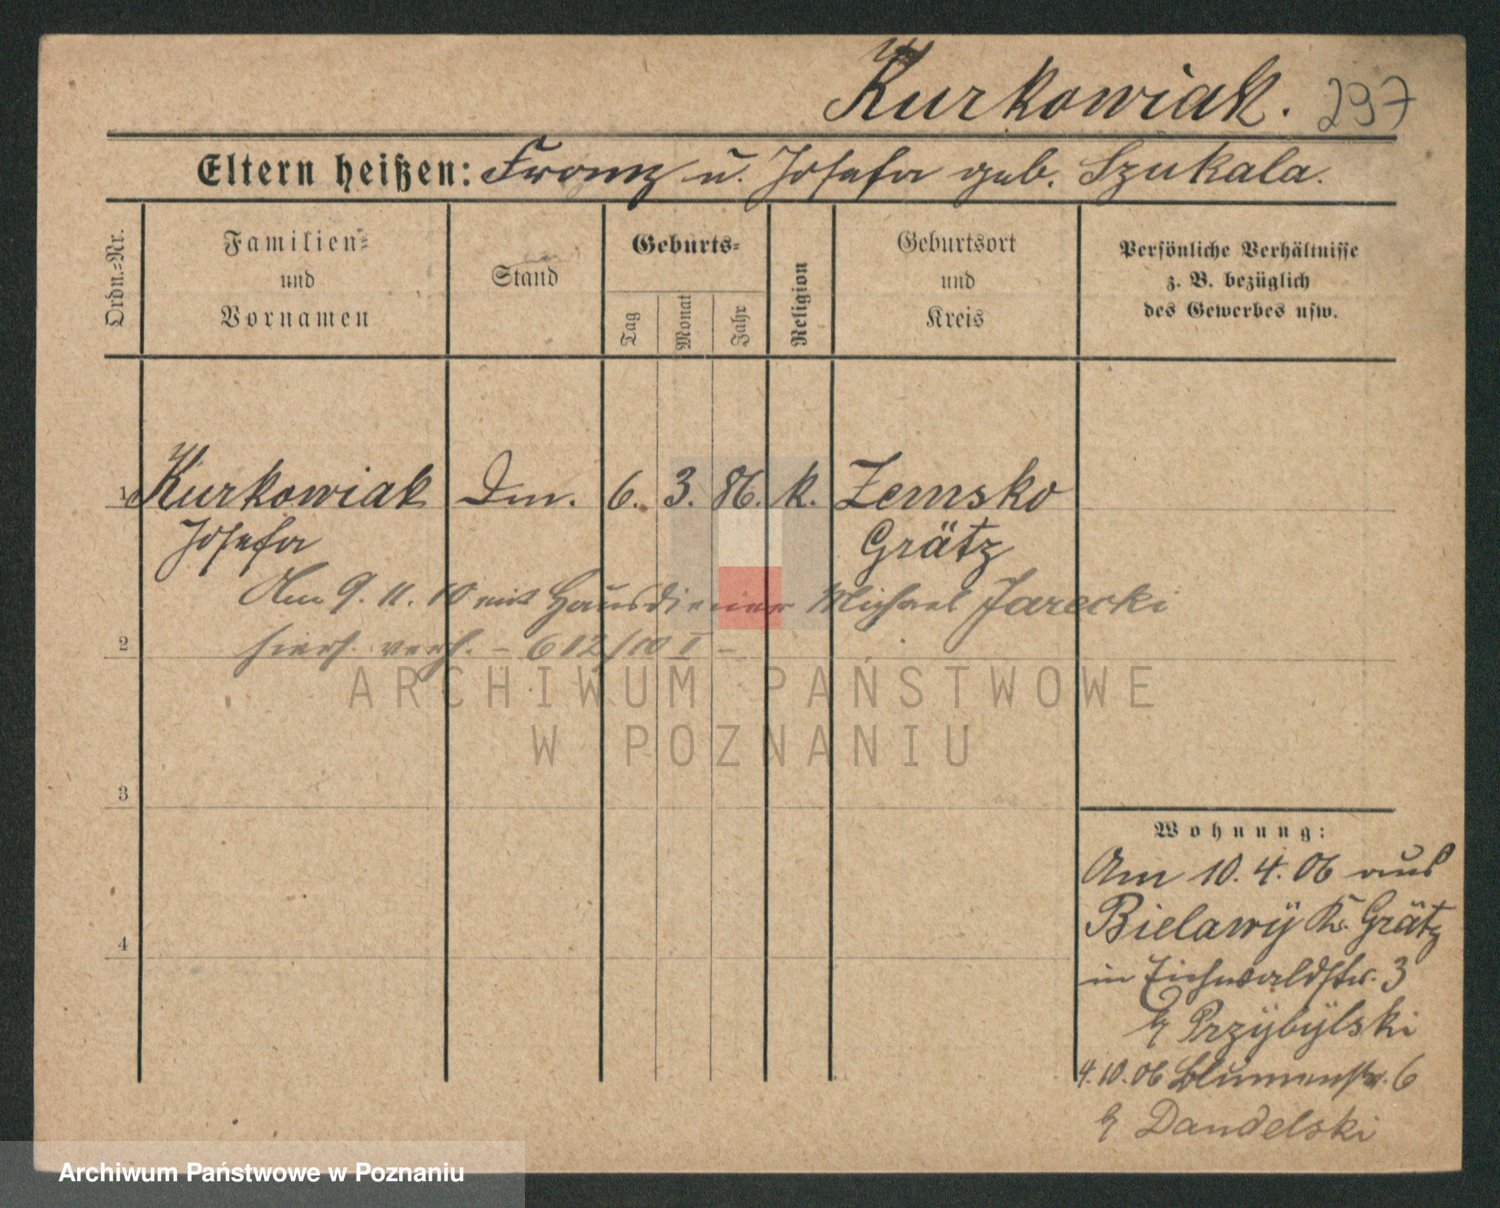 Kurkowiak. 297
Eltern heißen: Franz u. Josefa geb. Szukala.
Ordn.=Nr.
Familien=
und
Vornamen
Stand
Geburts=
Tag
Monat
Jahr
Religion
Geburtsort
und
Kreis
Persönliche Verhältnisse
z. B. bezüglich
des Gewerbes usw.
1 Kurkowiak Dm. 6. 3. 86. k. Zemsko
Josefa Grätz
Am 9. 11. 10 mit Hausdiener Michael Jarecki
hiers. verh. – 612/10 I –
2
3
4
ARCHIWUM PAŃSTWOWE
W POZNANIU
Wohnung:
Am 10. 4. 06 aus
Bielawy Kr. Grätz
in Eichwaldstr. 3
b/ Przybylski
4. 10. 06 Blumenstr. 6
b/ Dandelski
Archiwum Państwowe w Poznaniu